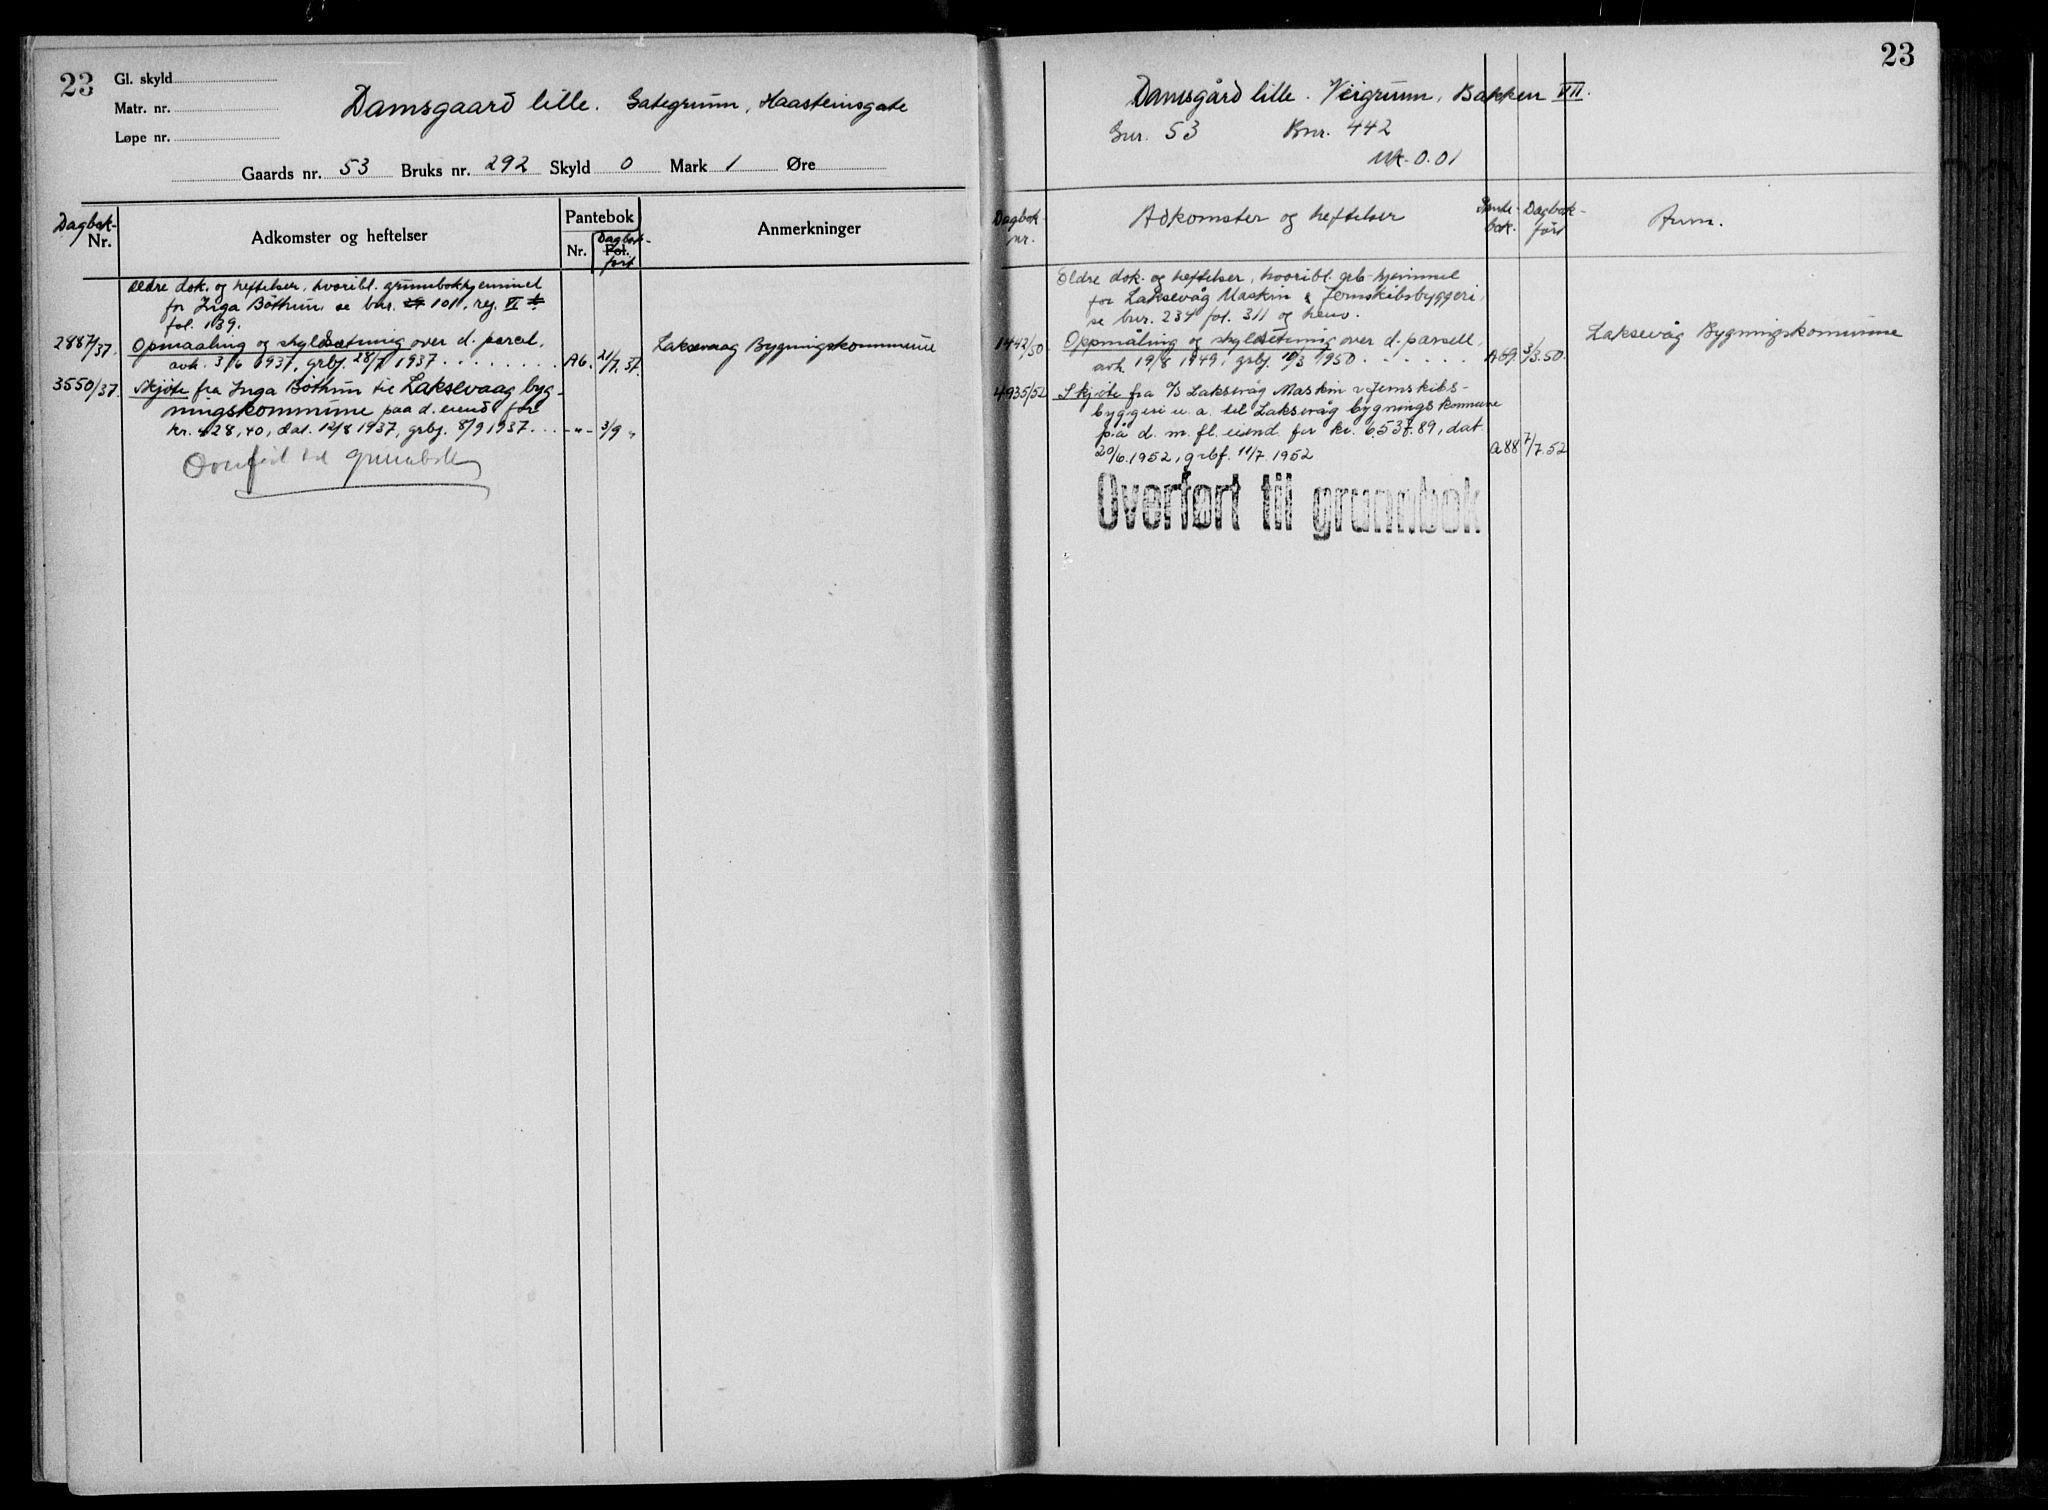 23
Gl. skyld
Matr. nr.
Løpe nr.
Damsgaard lille. Gategrunn, Haasteinsgate
Gaards nr. 53 Bruks nr. 292 Skyld 0 Mark 1 Øre
Dagbok-Nr.
Adkomster og heftelser
Pantebok
Nr.
Dagbok-
Fol.
ført
Anmerkninger
Ældre dok. og heftelser, hvoribl. grunnbokhjemmel
for Inga Böthun se bnr. 101, rej. VI
fol. 139.
2887/37. Opmaaling og skyldsætning over d. parcel,
avh. 3/6 1937, grbf. 28/7 1937 . . . . . . . A6. 21/7.37. Laksevaag Bygningskommune
3550/37. Skjøte fra Inga Bøthun til Laksevaag byg-
ningskommune paa d. eiend. for
kr. 428,40, dat. 12/8 1937, grbf. 8/9 1937. . . -"- 3/9 "
Overført til grunnbok
23
Damsgård lille. Veigrunn, Bakken VII.
Gnr. 53 Bnr. 442
Mk. 0.01
Dagbok-
nr.
Adkomster og heftelser
Pante-
bok.
Dagbok-
ført
Anm.
Eldre dok. og heftelser, hvoribl. grb-hjemmel
for Laksevåg Maskin & Jernskibsbyggeri,
se bnr. 234 fol. 311 og henv.
1442/50 Oppmåling og skyldsetning over d. parsell,
avh. 19/8 1949, grbf. 10/3 1950 . . . . . . A69. 3/3.50. Laksevåg Bygningskommune
4935/52 Skjøte fra A/S Laksevåg Maskin & Jernskibs-
byggeri u. a. til Laksevåg bygningskommune
på d. m. fl. eiend. for kr. 6.537.89, dat.
20/6.1952, grbf. 11/7.1952 A88 7/7.52
Overført til grunnbok